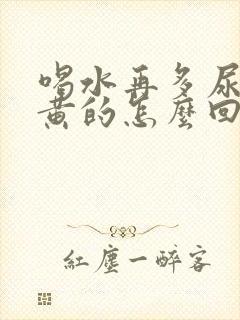 喝水再多尿
黄的怎麼回
紅塵一醉客